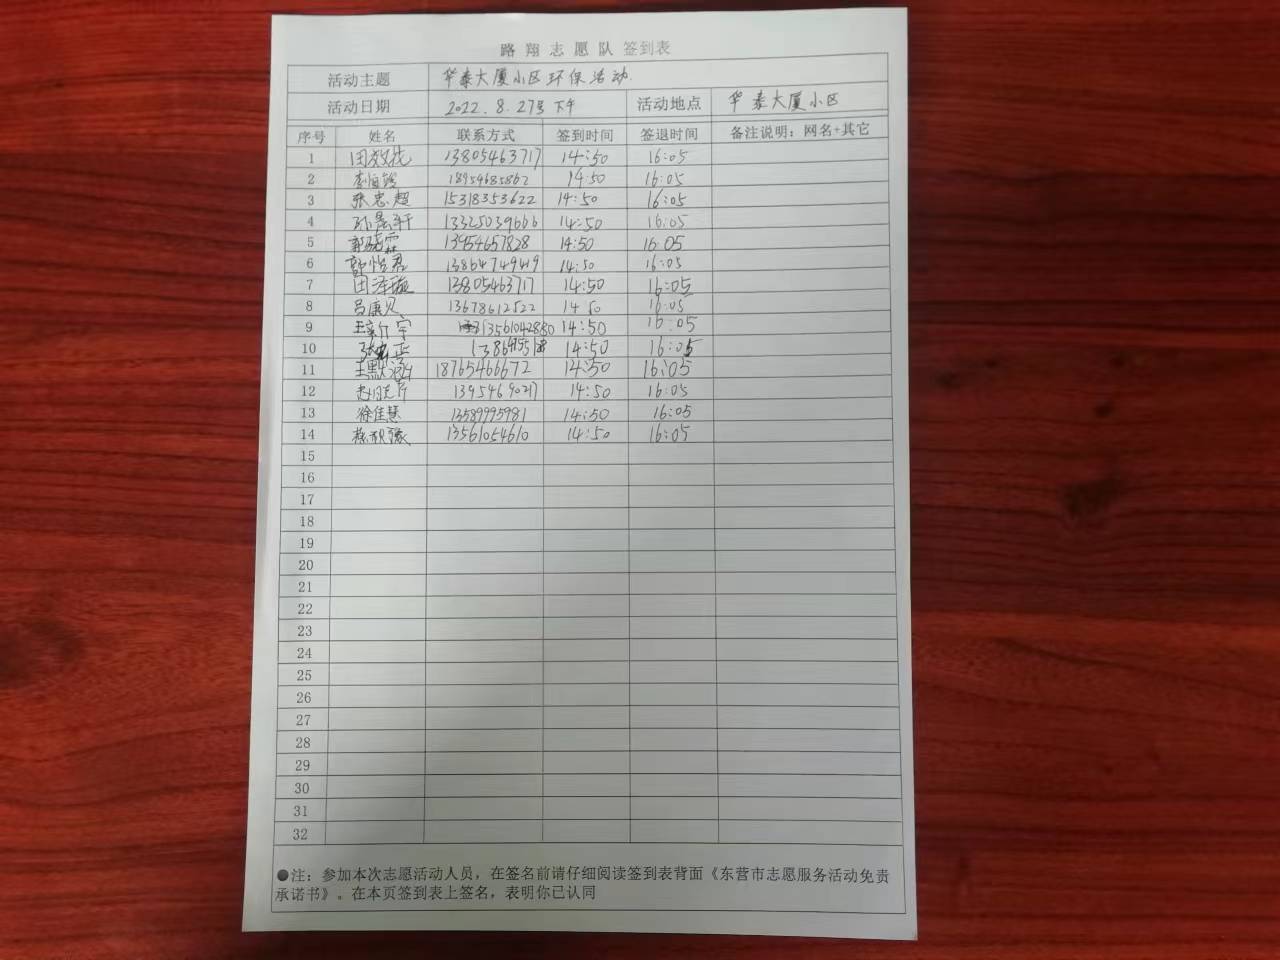 路翔志愿队 签到表
活动主题 华泰大厦小区环保活动.
活动日期 2022.8.27号下午 活动地点 华泰大厦小区
序号 姓名 联系方式 签到时间 签退时间 备注说明：网名+其它
1 13805463717 14:50 16:05
2 18954685862 14:50 16:05
3 张忠超 15318353622 14:50 16:05
4 13325039666 14:50 16:05
5 13954657828 14:50 16:05
6 郭怡君 13864749419 14:50 16:05
7 田泽璇 13805463717 14:50 16:05
8 13678612522 14:50 16:05
9 王新宇 13561042880 14:50 16:05
10 14:50 16:05
11 18765466672 14:50 16:05
12 13954690217 14:50 16:05
13 徐佳慧 13589995981 14:50 16:05
14 13561054610 14:50 16:05
15
16
17
18
19
20
21
22
23
24
25
26
27
28
29
30
31
32
●注：参加本次志愿活动人员，在签名前请仔细阅读签到表背面《东营市志愿服务活动免责
承诺书》。在本页签到表上签名，表明你已认同